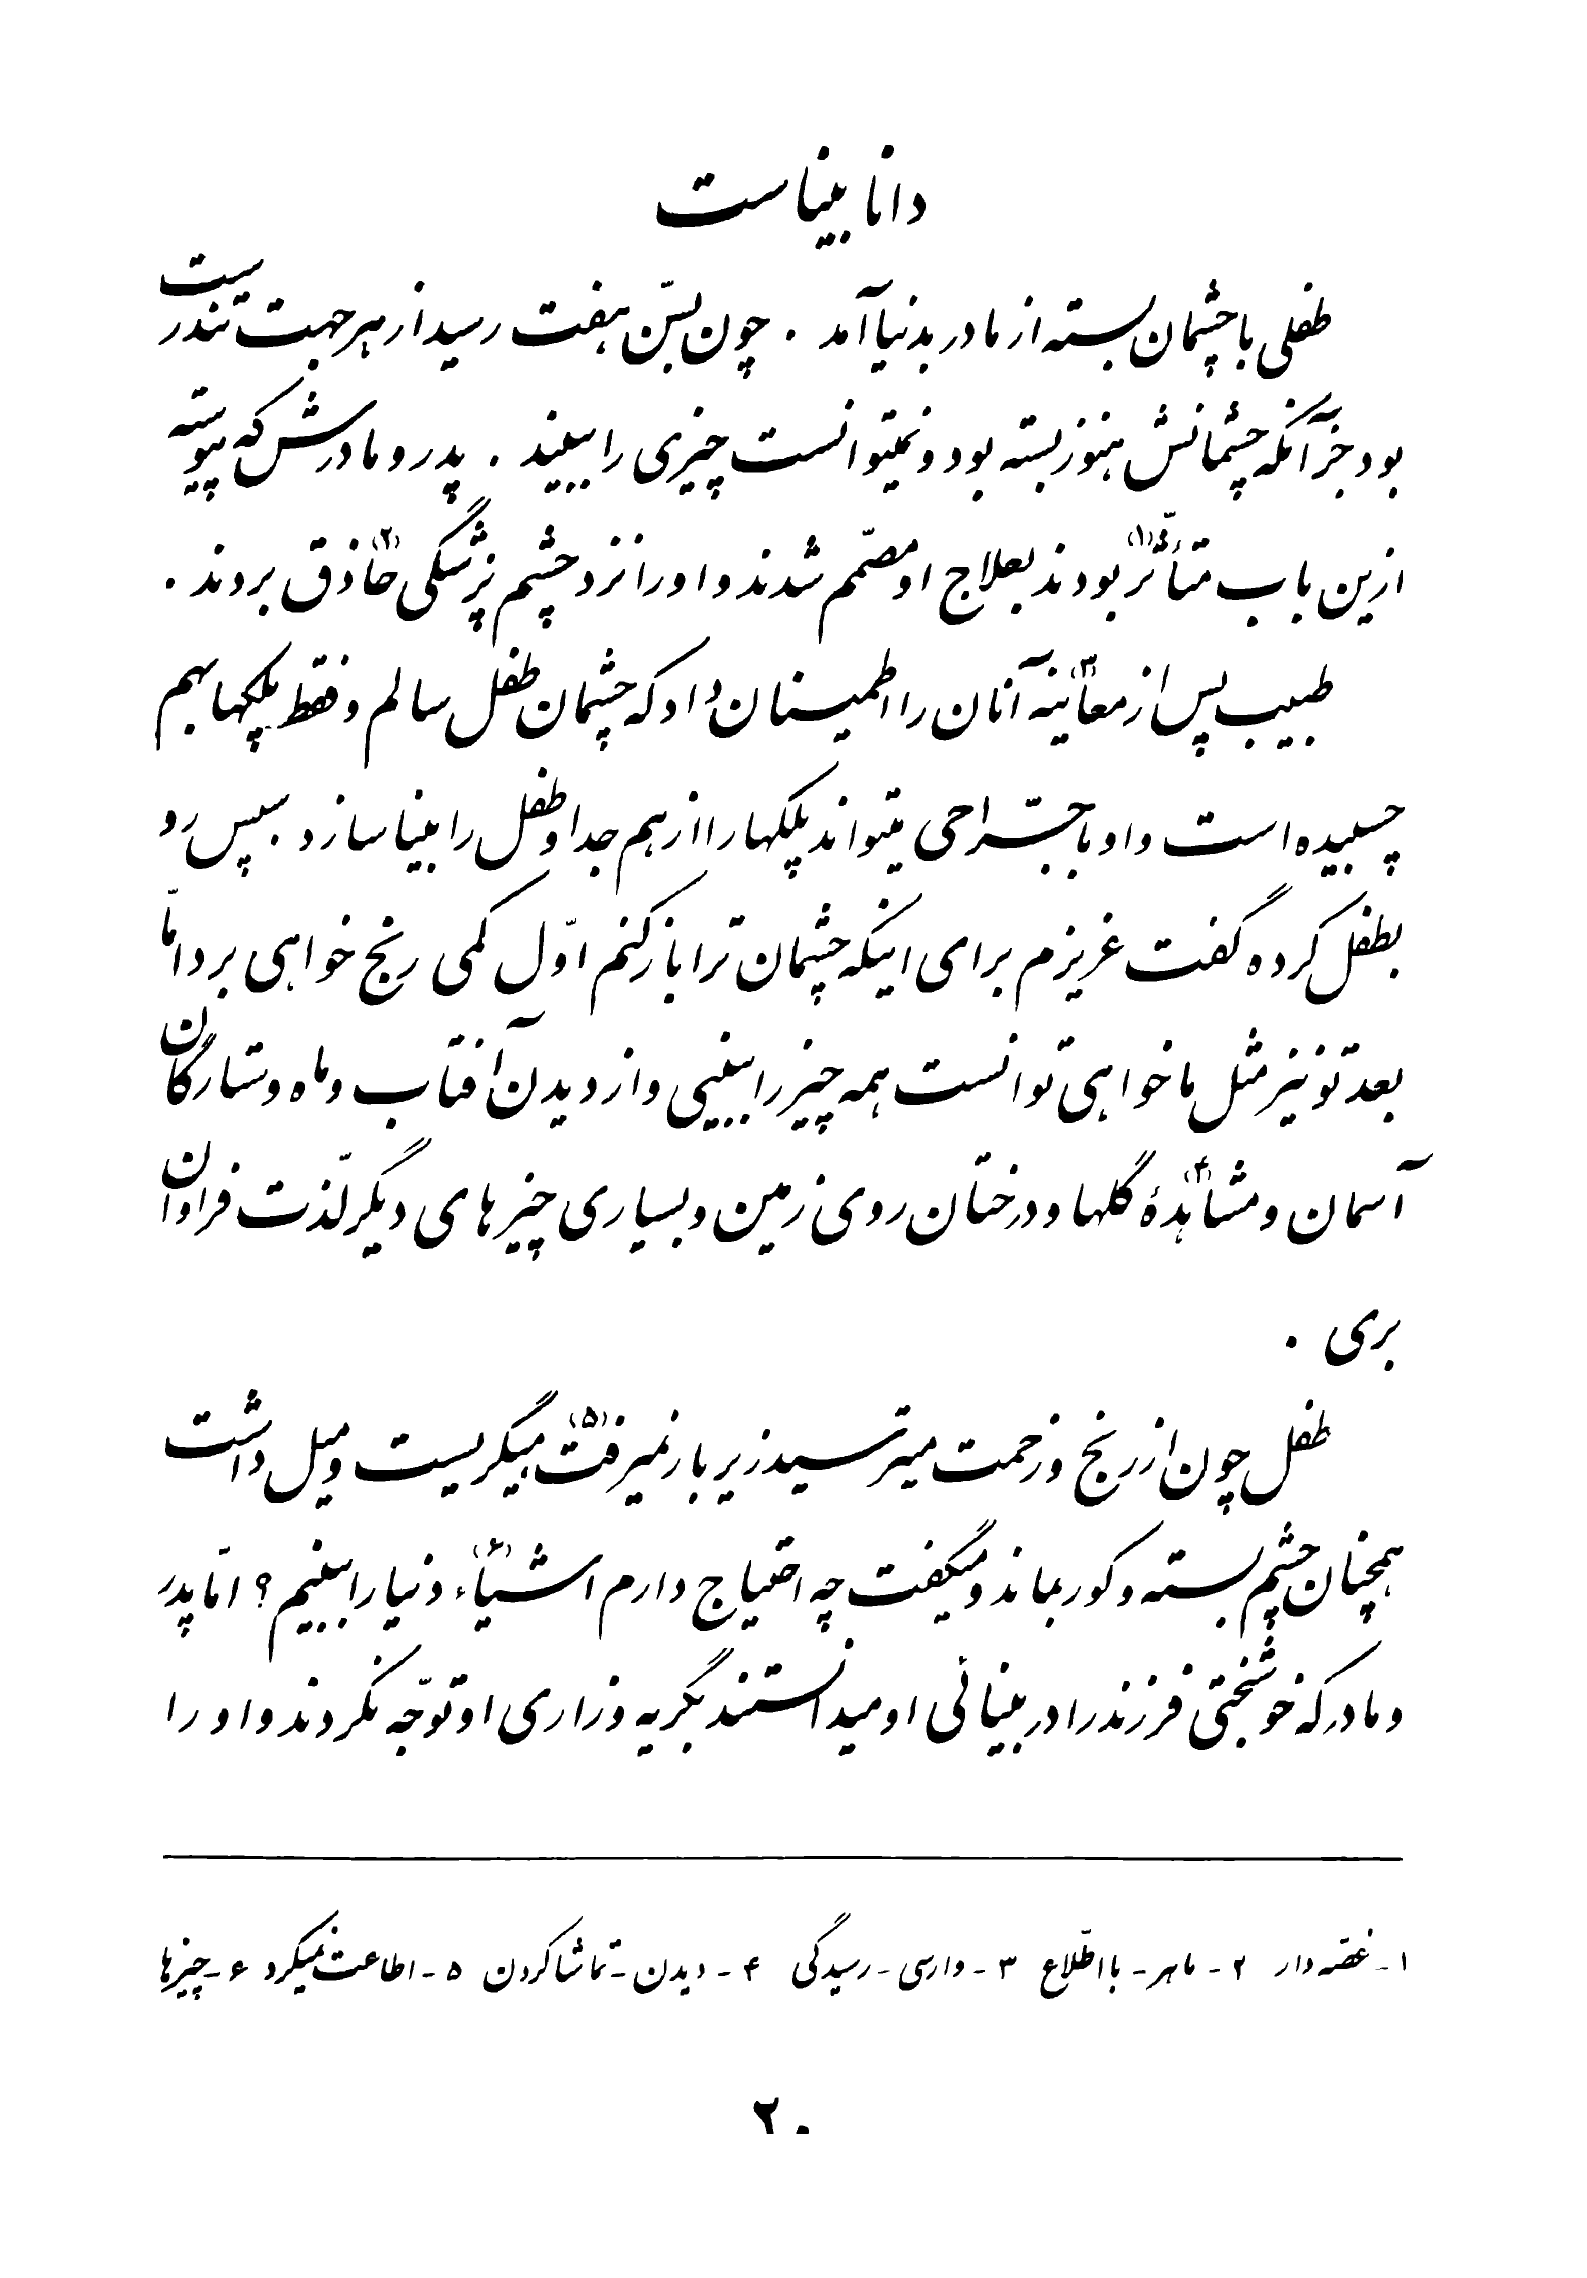 دانا بیناست
طفلی با چشمان بسته از مادر بدنیا آمد . چون بسنّ هفت رسید از هر جهت تندرست
بود جز آنکه چشمانش هنوز بسته بود و نمیتوانست چیزی را ببیند . پدر و مادرش که پیوسته
ازین باب متأثّر (۱) بودند بعلاج او مصمّم شدند و او را نزد چشم پزشکی حاذق (۲) بردند .
طبیب پس از معاینه (۳) آنان را اطمینان داد که چشمان طفل سالم و فقط پلکها بهم
چسبیده است و او با جرّاحی میتواند پلکها را از هم جدا و طفل را بینا سازد . سپس رو
بطفل کرده گفت عزیزم برای اینکه چشمان ترا باز کنم اوّل کمی رنج خواهی برد امّا
بعد تو نیز مثل ما خواهی توانست همه چیز را ببینی و از دیدن آفتاب و ماه و ستارگان
آسمان و مشاهدهٔ (۴) گلها و درختان روی زمین و بسیاری چیزهای دیگر لذّت فراوان
بری .
طفل چون از رنج و زحمت میترسید زیر بار نمیرفت (۵) میگریست و میل داشت
همچنان چشم بسته و کور بماند و میگفت چه احتیاج دارم اشیاء (۶) دنیا را ببینم ؟ امّا پدر
و مادر که خوشبختی فرزند را در بینائی او میدانستند بگریه و زاری او توجّه نکردند و او را
۱ - غصّه دار ۲ - ماهر - با اطّلاع ۳ - وارسی - رسیدگی ۴ - دیدن - تماشا کردن ۵ - اطاعت نمیکرد ۶ - چیزها
۲۰